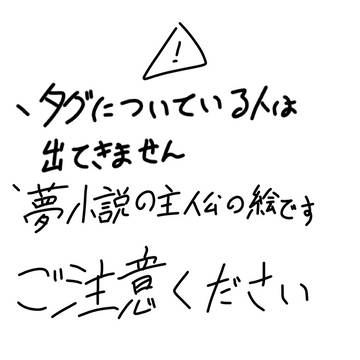 !
、タグについている人は
出てきません
、夢小説の主人公の絵です
ご注意ください